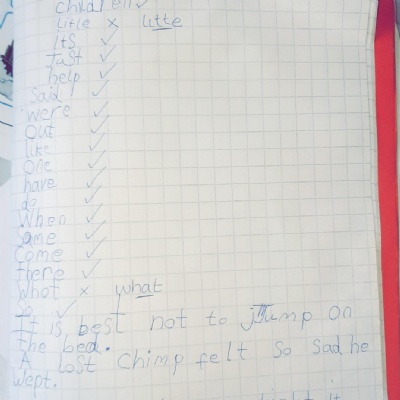 children ✓
litle × litte
Its ✓
Just ✓
help ✓
said ✓
were ✓
out ✓
like ✓
one ✓
have ✓
do ✓
When ✓
Same ✓
Come ✓
there ✓
Whot × what
so ✓
It is best not to jump on
the bed.
A lost Chimp felt so sad he
wept.